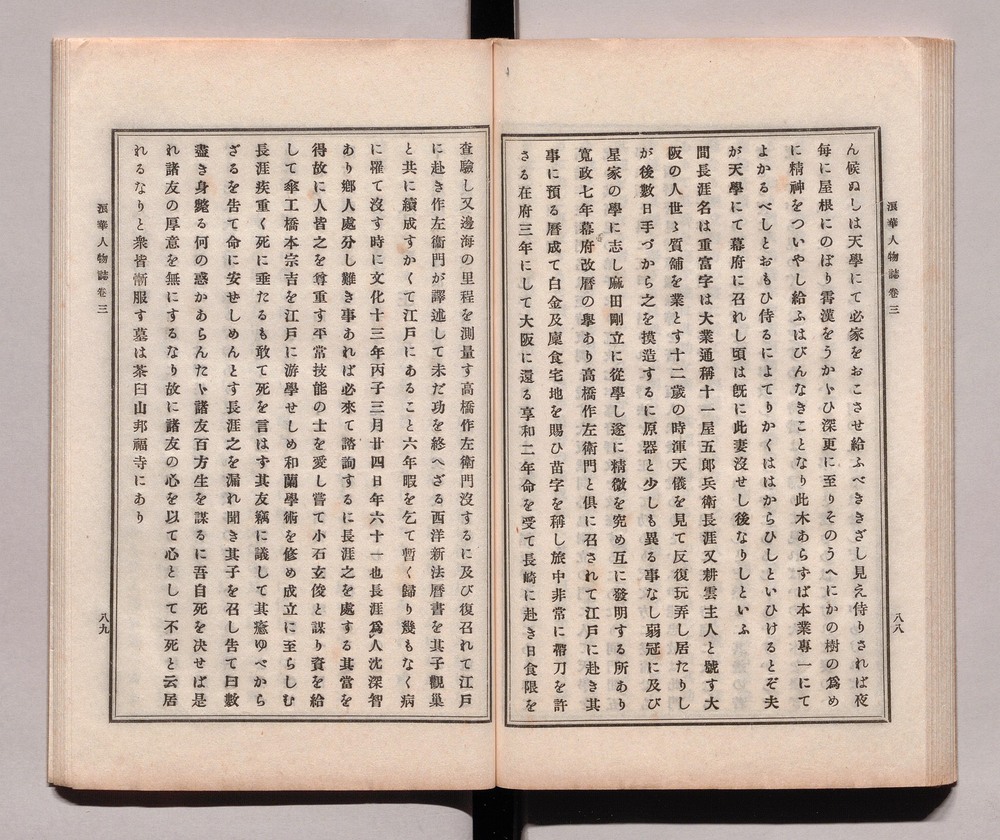 浪華人物誌卷三
八八
ん候ぬしは天學にて必家をおこさせ給ふべききざし見え侍りされば夜
每に屋根にのぼり霄漢をうかヾひ深更に至りそのうへにかの樹の爲め
に精神をついやし給ふはびんなきことなり此木あらずば本業專一にて
よかるべしとおもひ侍るによてりかくははからひしといひけるとぞ夫
が天學にて幕府に召れし頃は既に此妻沒せし後なりしといふ
間長涯名は重富字は大業通稱十一屋五郎兵衛長涯又耕雲主人と號す大
阪の人世〻質舖を業とす十二歲の時渾天儀を見て反復玩弄し居たりし
が後數日手づから之を摸造するに原器と少しも異る事なし弱冠に及び
星家の學に志し麻田剛立に從學し遂に精微を究め互に發明する所あり
寬政七年幕府改曆の擧あり高橋作左衛門と俱に召されて江戶に赴き其
事に預る曆成て白金及廩食宅地を賜ひ苗字を稱し旅中非常に帶刀を許
さる在府三年にして大阪に還る享和二年命を受て長崎に赴き日食限を
査驗し又邊海の里程を測量す高橋作左衛門沒するに及び復召れて江戶
に赴き作左衛門が譯述して未だ功を終へざる西洋新法曆書を其子觀巢
と共に續成すかくて江戶にあること六年暇を乞て暫く歸り幾もなく病
に罹て沒す時に文化十三年丙子三月廿四日年六十一也長涯爲人沈深智
あり鄉人處分し難き事あれば必來て諮詢するに長涯之を處する其當を
得故に人皆之を尊重す平常技能の士を愛し嘗て小石玄俊と謀り資を給
して傘工橋本宗吉を江戶に游學せしめ和蘭學術を修め成立に至らしむ
長涯疾重く死に垂たるも敢て死を言はず其友竊に議して其癒ゆべから
ざるを告て命に安せしめんとす長涯之を漏れ聞き其子を召し告て曰數
盡き身斃る何の惑かあらんたヾ諸友百方生を謀るに吾自死を決せば是
れ諸友の厚意を無にするなり故に諸友の心を以て心として不死と云居
れるなりと衆皆慚服す墓は茶臼山邦福寺にあり
浪華人物誌卷三
八九